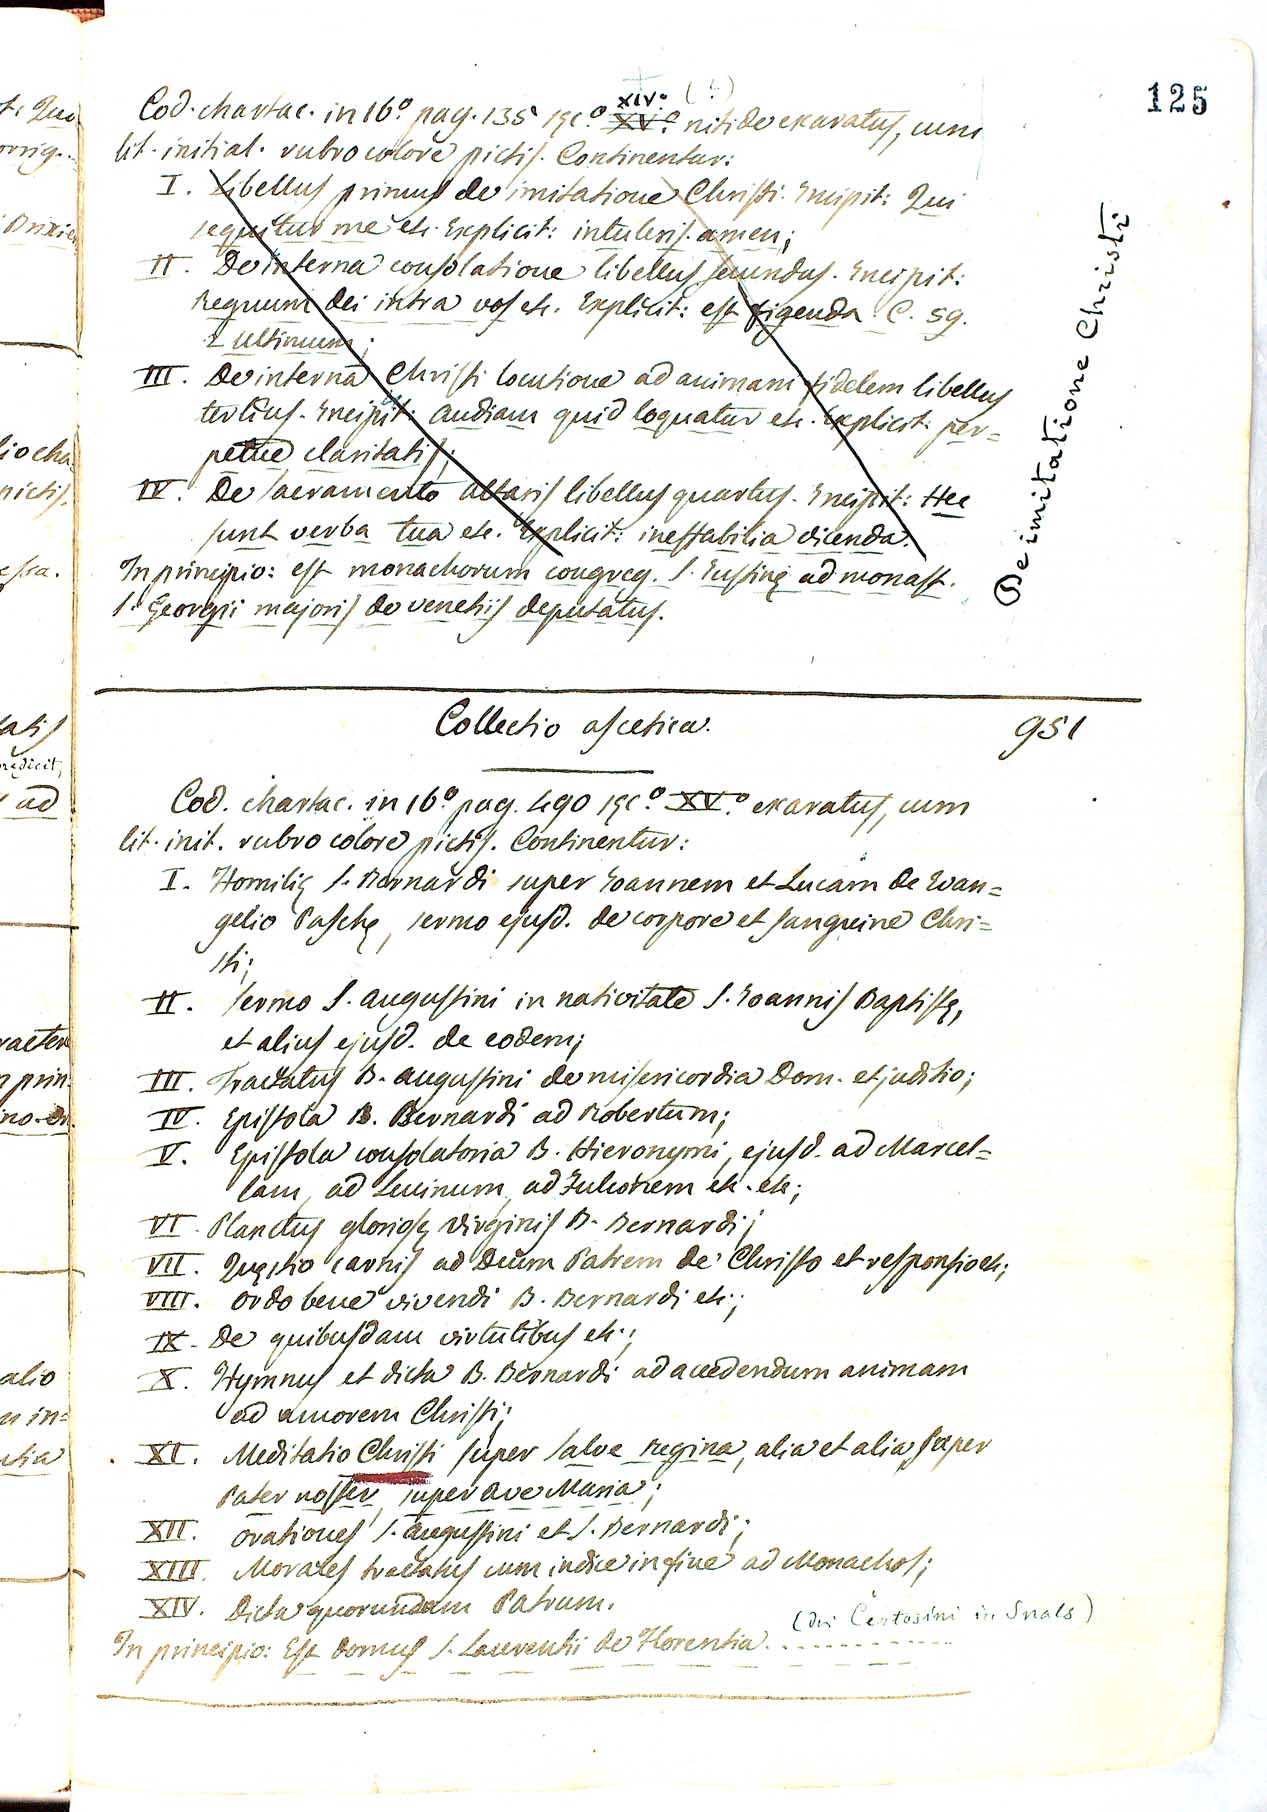 125
XIV.º
Cod. chartac. in 16º pag. 135 sęc.º XV.º nitide exaratus, cum
lit. initial. rubro colore pictis. Continentur:
I. Libellus primus de imitatione Christi. Incipit: Qui
sequitur me etc. Explicit: intuleris. amen;
II. De interna consolatione libellus secundus. Incipit:
Regnum dei intra vos etc. Explicit: est figenda. C. 59.
ultimum;
III. De interna Christi locutione ad animam fidelem libellus
tertius. Incipit: Audiam quid loquatur etc. Explicit: per=
petue claritatis;
IV. De sacramento altaris libellus quartus. Incipit: Hec
sunt verba tua etc. Explicit: ineffabilia dicenda.
In principio: est monachorum congreg. S. Iustinę ad monast.
S. Georgii majoris de venetiis deputatus.
De imitatione Christi
Collectio ascetica. 951
Cod. chartac. in 16º pag. 490 sęc.º XV.º exaratus, cum
lit. init. rubro colore pictis. Continentur:
I. Homilię S. Bernardi super Ioannem et Lucam de Evan=
gelio Paschę, sermo ejusd. de corpore et sanguine Chri=
sti;
II. Sermo S. Augustini in nativitate S. Ioannis Baptistę,
et alius ejusd. de eodem;
III. Tractatus B. Augustini de misericordia Dom. et juditio;
IV. Epistola B. Bernardi ad Robertum;
V. Epistola consolatoria B. Hieronymi, ejusd. ad Marcel=
lam, ad Lucinum, ad etc. etc;
VI. Planctus gloriosę Virginis B. Bernardi;
VII. Quęstio carnis ad Deum Patrem de Christo et responsio etc;
VIII. Ordo bene vivendi B. Bernardi etc.;
IX. De quibusdam virtutibus etc.;
X. Hymnus et dicta B. Bernardi ad accedendum animam
ad amorem Christi;
XI. Meditatio Christi super Salve Regina, alia et alia super
Pater noster, super Ave Maria;
XII. Orationes S. Augustini et S. Bernardi;
XIII. Morales tractatus cum indice in fine ad Monachos;
XIV. Dicta quorumdam Patrum.
(dei Certosini in Snals)
In principio: Est domus S. Laurentii de Florentia.